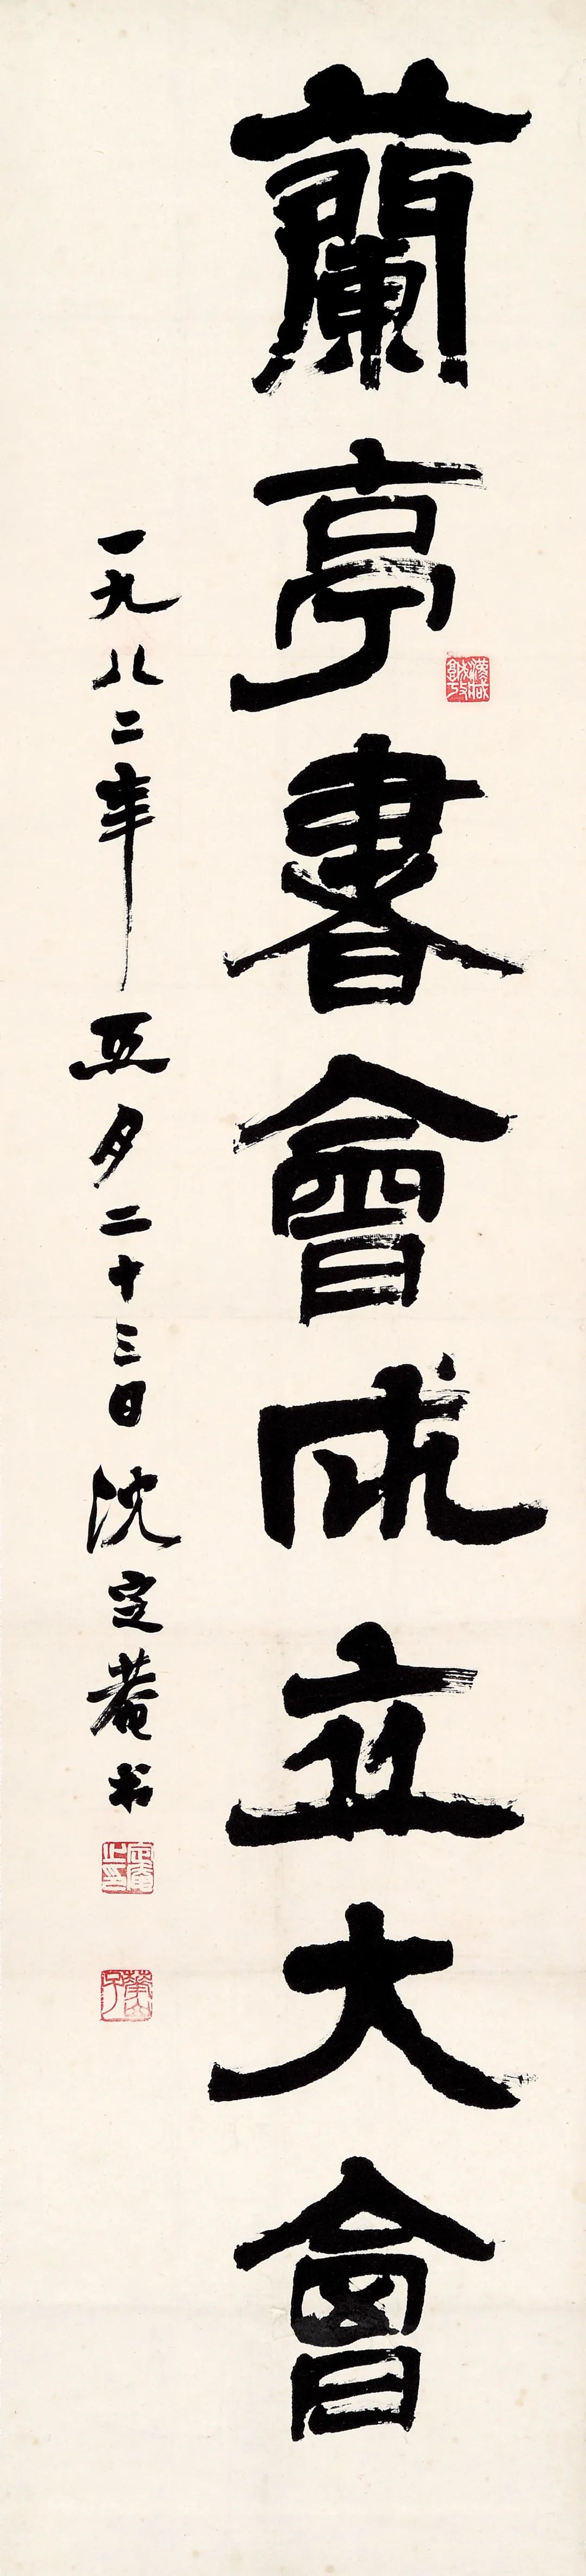 蘭亭書會成立大會
一九八二年五月二十三日沈定菴书